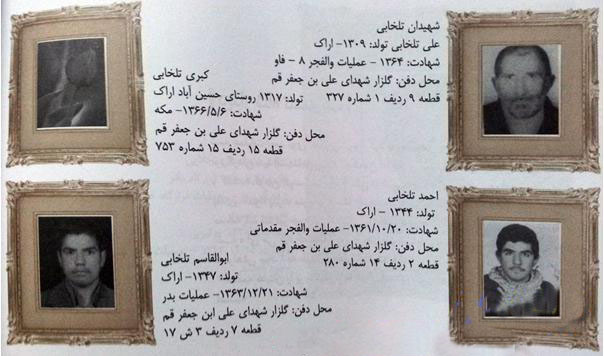 شهیدان تلخابی
علی تلخابی تولد: ۱۳۰۹- اراک
شهادت: ۱۳۶۴- عملیات والفجر ۸ - فاو
محل دفن: گلزار شهدای علی بن جعفر قم
قطعه ۹ ردیف ۱ شماره ۳۲۷
کبری تلخابی
تولد: ۱۳۱۷ روستای حسین آباد اراک
شهادت: ۱۳۶۶/۵/۶- مکه
محل دفن: گلزار شهدای علی بن جعفر قم
قطعه ۱۵ ردیف ۱۵ شماره ۷۵۳
احمد تلخابی
تولد: ۱۳۴۴ - اراک
شهادت: ۱۳۶۱/۱۰/۲۰- عملیات والفجر مقدماتی
محل دفن: گلزار شهدای علی بن جعفر قم
قطعه ۲ ردیف ۱۴ شماره ۲۸۰
ابوالقاسم تلخابی
تولد: ۱۳۴۷- اراک
شهادت: ۱۳۶۳/۱۲/۲۱- عملیات بدر
محل دفن: گلزار شهدای علی ابن جعفر قم
قطعه ۷ ردیف ۳ ش ۱۷